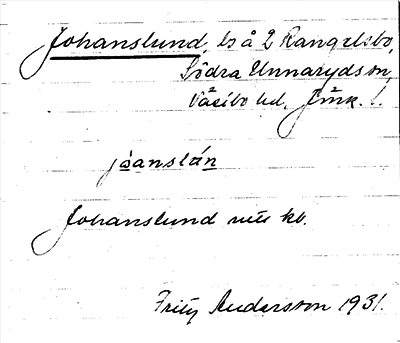 Johanslund, ls å 2 Rangelsbo,
Södra Unnaryds sn,
Västbo hd, Jönk. l.
jòanslán
Johanslund kb.
Fritz Andersson 1931.